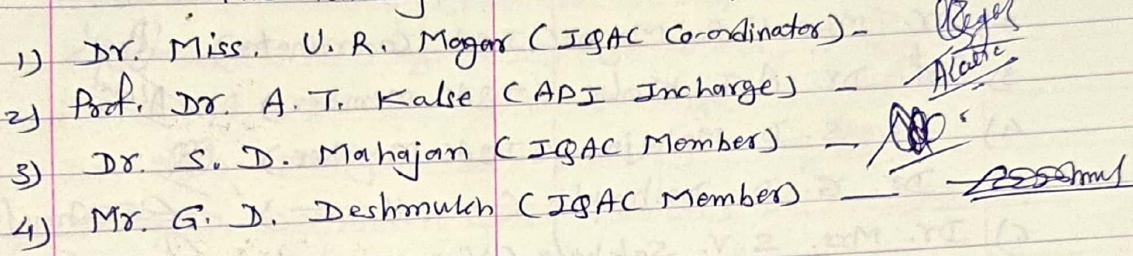 1) Dr. Miss. U. R. Magar (IQAC Co-ordinator) -
2) Prof. Dr. A. T. Kalse (API Incharge) -
3) Dr. S. D. Mahajan (IQAC Member) -
4) Mr. G. D. Deshmukh (IQAC Member) -